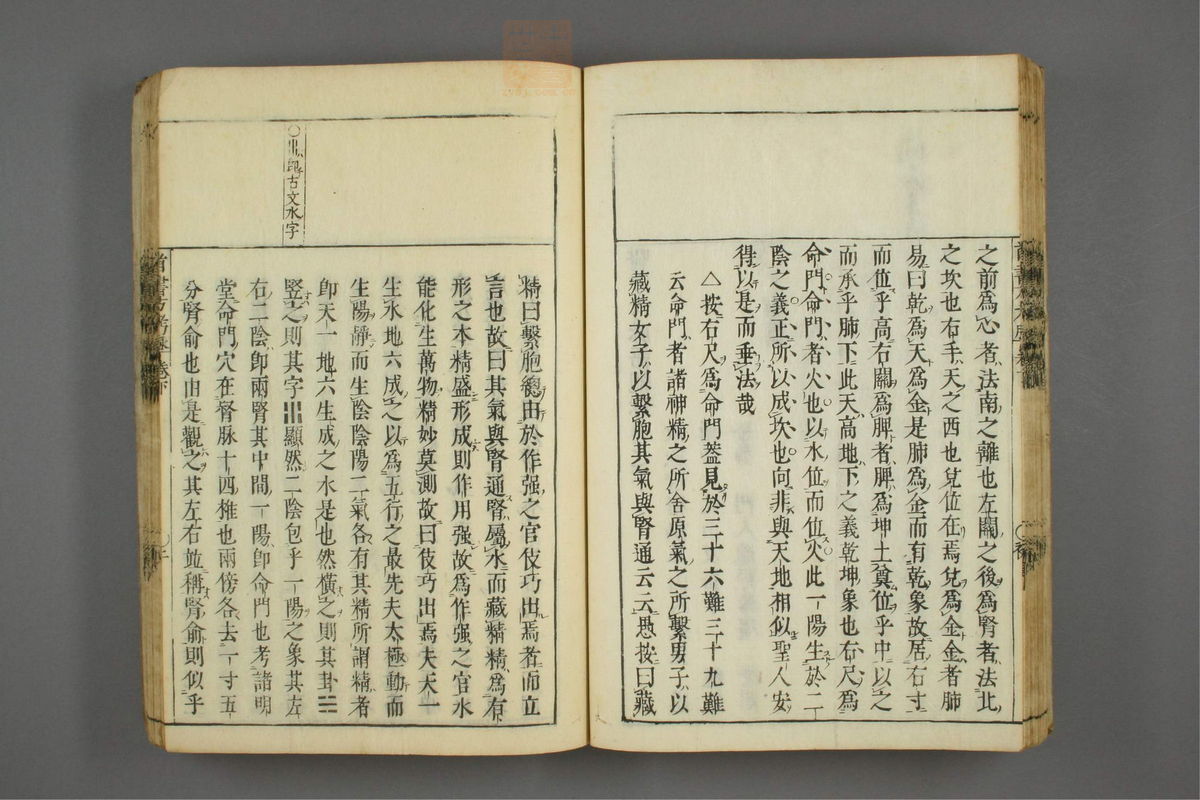 之前為心者法南之離也左關之後為腎者法北
之坎也右手天之西也兌位在焉兌為金金者肺
易曰乾為天為金是肺為金而有乾象故居右寸
而位乎高右關為脾者脾為坤土奠位乎中以之
而承乎肺下此天高地下之義乾坤象也右尺為
命門命門者火也以水位而位火此一陽生於二
陰之義正所以成坎也向非與天地相似聖人安
得以是而垂法哉
△按右尺為命門蓋見於三十六難三十九難
云命門者諸神精之所舍原氣之所繫男子以
藏精女子以繫胞其氣與腎通云云愚按曰藏
精曰繫胞總由於作强之官伎巧出焉者而立
言也故曰其氣與腎通腎屬水而藏精精為有
形之本精盛形成則作用强故為作强之官水
能化生萬物精妙莫測故曰伎巧出焉夫天一
生水地六成之以為五行之最先夫太極動而
生陽靜而生陰陰陽二氣各有其精所謂精者
卽天一地六生成之水是也然橫之則其卦☵
竪之則其字顯然二陰包乎一陽之象其左
右二陰卽兩腎其中間一陽卽命門也考諸明
堂命門穴在督脉十四椎也兩傍各去一寸五
分腎俞也由是觀之其左右並稱腎俞則似乎
○卽古文水字